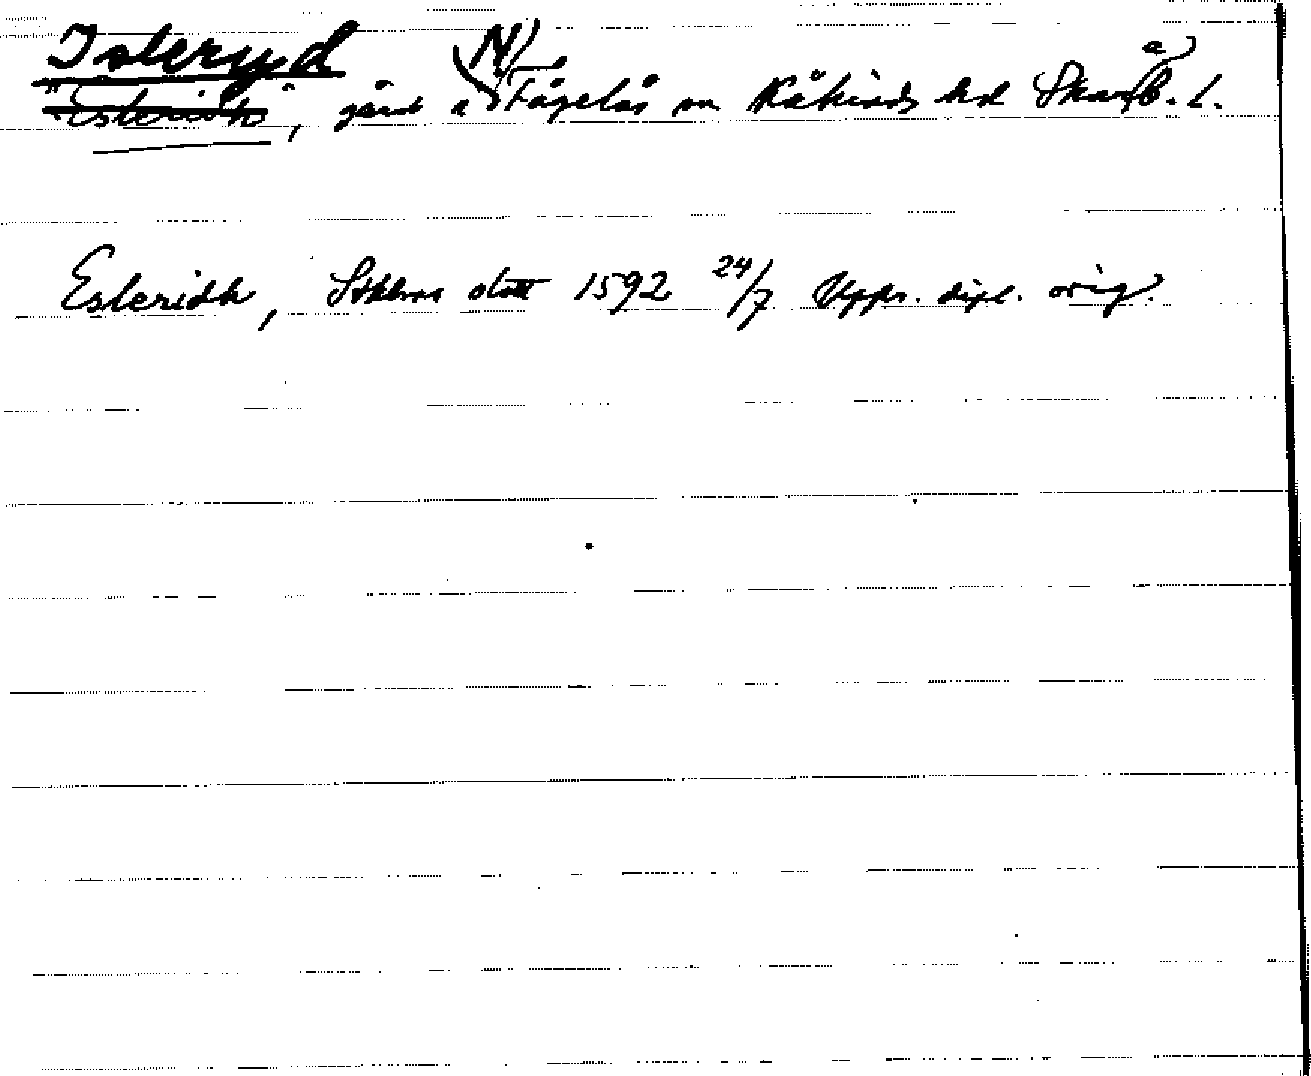 Isteryd
"Esteridh", gård i N Fågelås sn Kåkinds hd Skarab. l.
Esteridh, Sthlms slott 1592 24/7 Upps. dipl. orig.